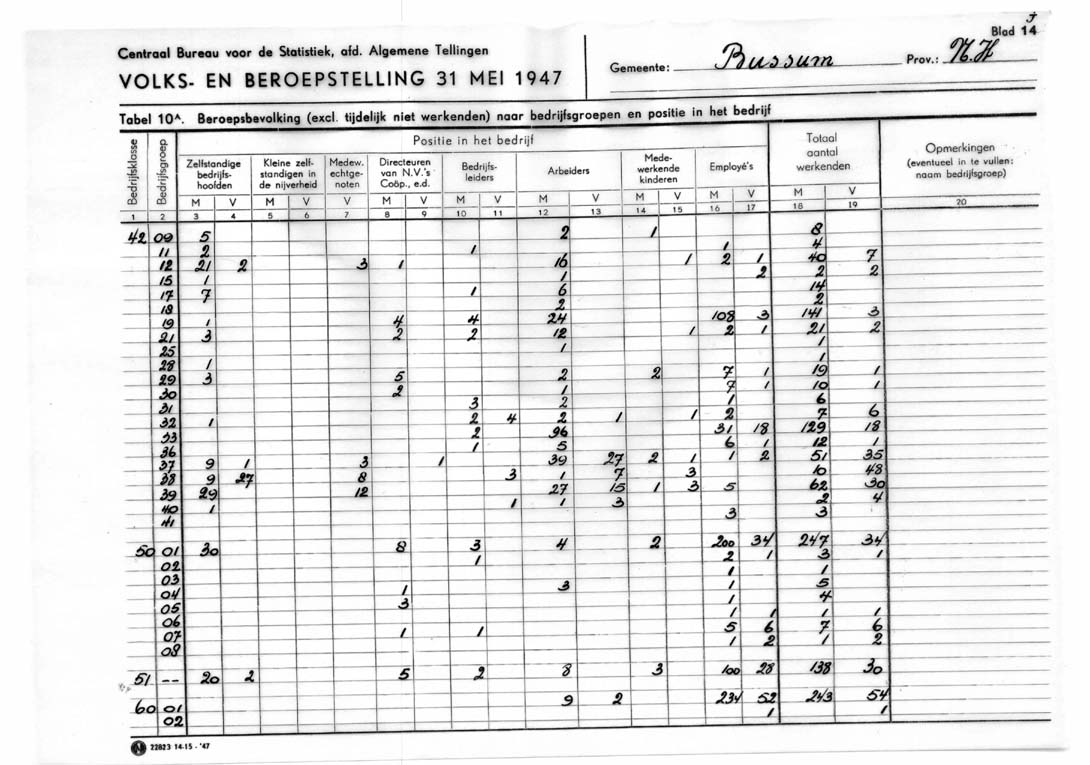 Blad 14
Centraal Bureau voor de Statistiek, afd. Algemene Tellingen
VOLKS- EN BEROEPSTELLING 31 MEI 1947
Gemeente: Bussum Prov.: N.H
Tabel 10A. Beroepsbevolking (excl. tijdelijk niet werkenden) naar bedrijfsgroepen en positie in het bedrijf
Bedrijfsklasse
Bedrijfsgroep
Positie in het bedrijf
Zelfstandige bedrijfs-hoofden
Kleine zelf-standigen in de nijverheid
Medew. echtge-noten
Directeuren van N.V.'s Coöp., e.d.
Bedrijfs-leiders
Arbeiders
Mede-werkende kinderen
Employé's
Totaal aantal werkenden
Opmerkingen (eventueel in te vullen: naam bedrijfsgroep)
M V M V V M V M V M V M V M V M V
1 2 3 4 5 6 7 8 9 10 11 12 13 14 15 16 17 18 19 20
42 09 5 2 1 8
11 2 1 1 4
12 21 2 3 1 16 1 2 1 40 7
15 1 1 2 2 2
17 7 1 6 14
18 2 2
19 1 4 4 24 108 3 141 3
21 3 2 2 12 1 2 1 21 2
25 1 1
28 1 1
29 3 5 2 2 7 1 19 1
30 2 1 7 1 10 1
31 3 2 1 6
32 1 2 4 2 1 1 2 7 6
33 2 96 31 18 129 18
36 1 5 6 1 12 1
37 9 1 3 1 39 27 2 1 1 2 51 35
38 9 27 8 3 1 7 3 10 48
39 29 12 27 15 1 3 5 62 30
40 1 1 1 3 2 4
41 3 3
50 01 30 8 3 4 2 200 34 247 34
02 1 2 1 3 1
03 1 1
04 1 3 1 5
05 3 1 4
06 1 1 1 1
07 1 1 5 6 7 6
08 1 2 1 2
51 -- 20 2 5 2 8 3 100 28 138 30
60 01 9 2 234 52 243 54
02 1 1
22823 14-15 - '47